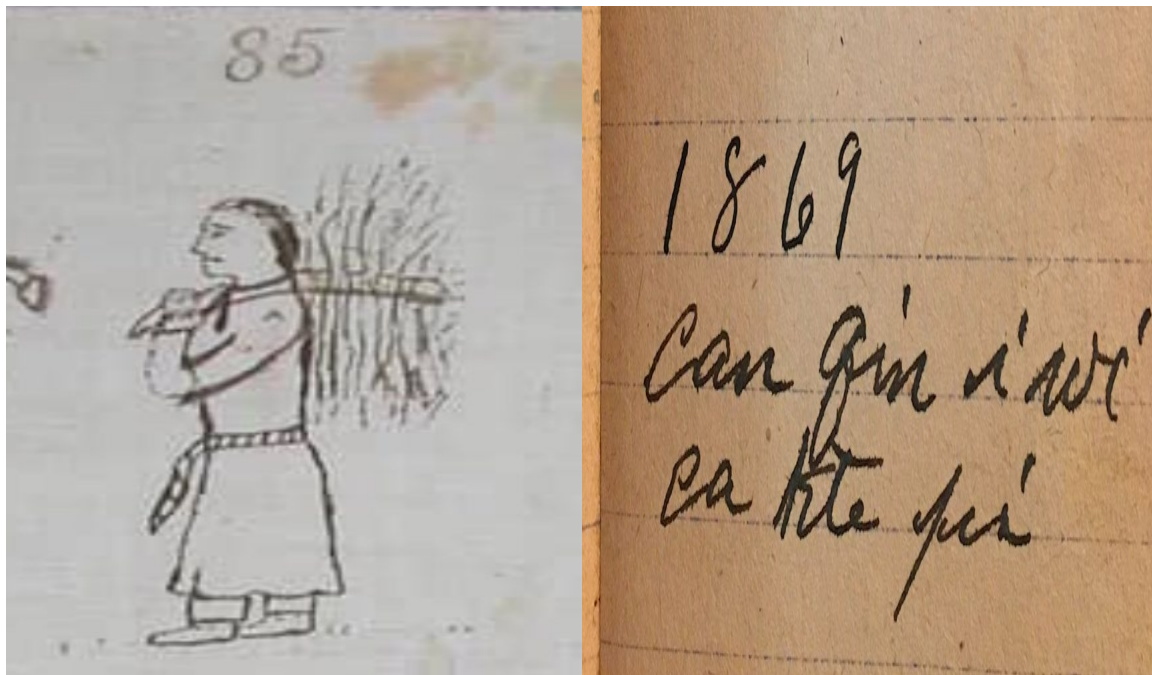 85
1869
can qin i wi
ca kte pi